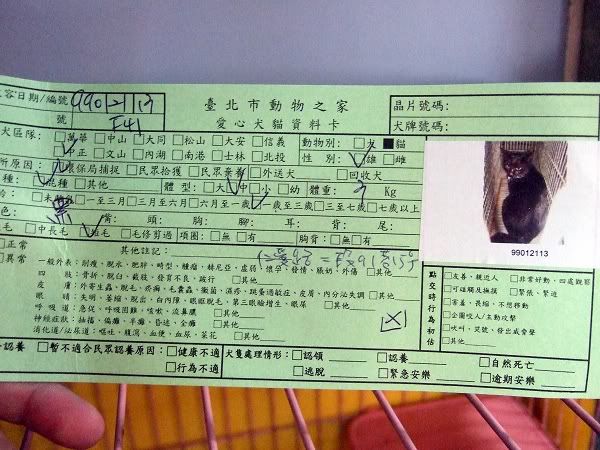 容日期/編號 990121 13
號 I-41
臺北市動物之家
愛心犬貓資料卡
晶片號碼:
犬牌號碼:
犬區隊: □萬華 □中山 □大同 □松山 □大安 □信義 動物別: □犬 ■貓
□中正 □文山 □內湖 □南港 □士林 □北投 性別: □雄 □雌
所原因: □環保局捕捉 □民眾拾獲 □民眾棄養 □外送犬 □回收犬
種: □混種 □其他 體型: □大 □中 □小 □幼 體重: Kg
齡: □未 □一至三月 □三月至六月 □六月至一歲 □一至三歲 □三至七歲 □七歲以上
色: 黑 嘴: 頭: 胸: 腳: 耳: 背: 尾:
毛 □中長毛 □短毛 □毛修剪過 項圈: □無 □有 胸背: □無 □有
99012113
□正常
□異常
其他註記:
一般外表: 削瘦、脫水、肥胖、畸型、腫瘤、赫尼亞、虛弱、懷孕、發情、脹奶、外傷 □其他
四肢: 骨折、脫臼、截肢、發育不良、跛行 □其他
皮膚: 外寄生蟲、脫毛、疥癬、毛囊蟲、黴菌、濕疹、跳蚤過敏症、皮膚、內分泌失調 □其他
眼睛: 失明、萎縮、脫出、白內障、眼眶脫毛、第三眼瞼增生、眼屎 □其他
呼吸道: 急促、呼吸困難、咳嗽、流鼻膿 □其他
神經症狀: 抽搐、偏癱、半癱、昏迷、全癱 □其他
消化道/泌尿道: 嘔吐、腹瀉、血便、血尿、菜花 □其他
點交時行為初估
□友善、親近人 □非常好動、四處觀察
□可碰觸及撫摸 □緊張、緊迫
□害羞、畏縮、不想移動
□企圖咬人/主動攻擊
□吠叫、哭號、發出威脅聲
□其他
認養 □暫不適合民眾認養原因: □健康不適 犬隻處理情形: □認領 □認養 □自然死亡
□行為不適 □逃脫 □緊急安樂 □逾期安樂